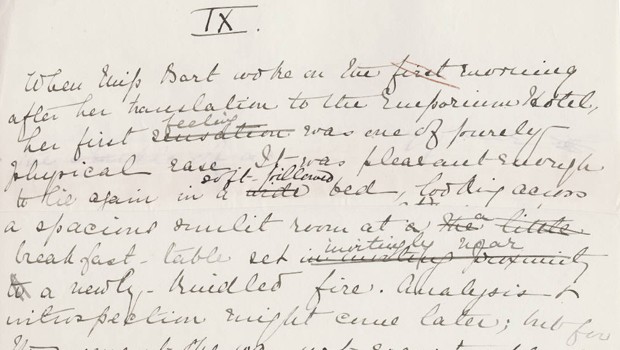 IX.
When Miss Bart woke on the first morning
after her translation to the Emporium Hotel,
feeling
her first sensation was one of purely
physical ease. It was pleasant enough
soft-pillowed
to lie again in a wide bed, looking across
a spacious sunlit room at a the a little
invitingly near
breakfast-table set in inviting proximity
to a newly-kindled fire. Analysis &
introspection might come later; but for